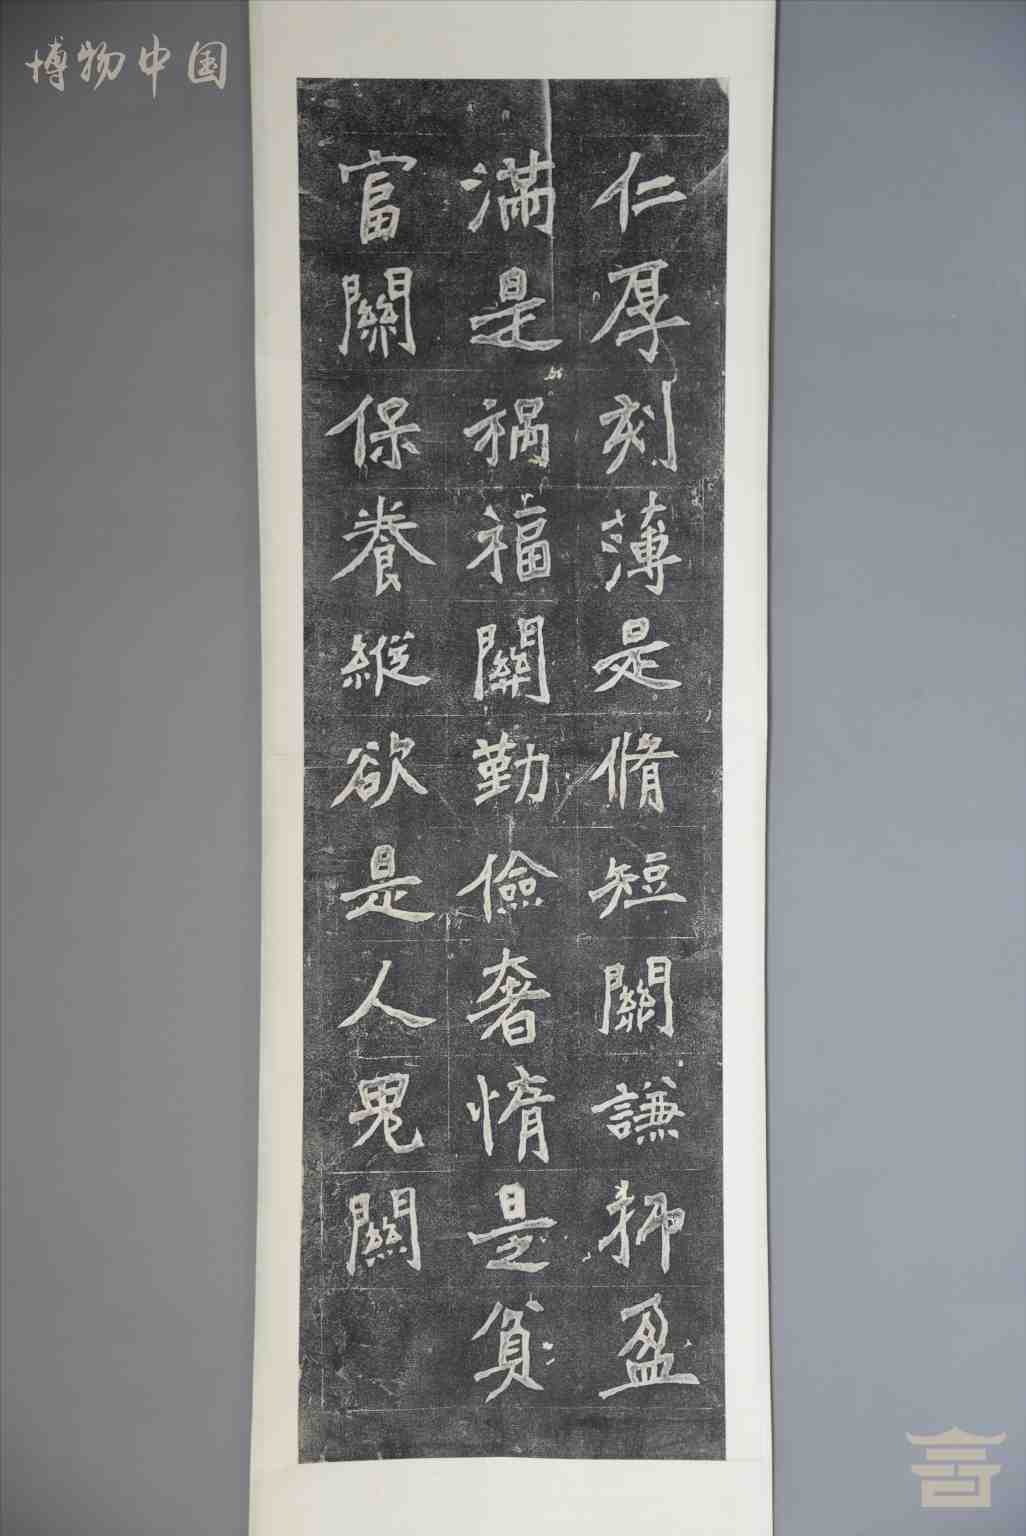 博物中国
仁厚刻薄是脩短關謙抑盈
滿是禍福關勤儉奢惰是貧
富關保養縱欲是人鬼關